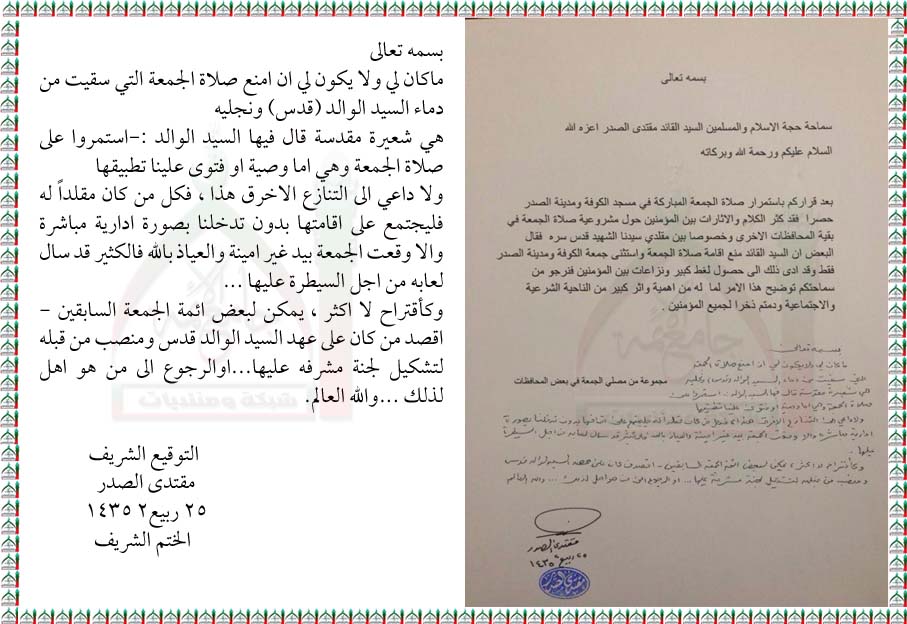 بسمه تعالى
ماكان لي ولا يكون لي ان امنع صلاة الجمعة التي سقيت من
دماء السيد الوالد (قدس) ونجليه
هي شعيرة مقدسة قال فيها السيد الوالد :-استمروا على
صلاة الجمعة وهي اما وصية او فتوى علينا تطبيقها
ولا داعي الى التنازع الاخرق هذا ، فكل من كان مقلداً له
فليجتمع على اقامتها بدون تدخلنا بصورة ادارية مباشرة
والا وقعت الجمعة بيد غير امينة والعياذ بالله فالكثير قد سال
لعابه من اجل السيطرة عليها ...
وكأقتراح لا اكثر ، يمكن لبعض ائمة الجمعة السابقين -
اقصد من كان على عهد السيد الوالد قدس ومنصب من قبله
لتشكيل لجنة مشرفه عليها...اوالرجوع الى من هو اهل
لذلك ...والله العالم.
التوقيع الشريف
مقتدى الصدر
٢٥ ربيع٢ ١٤٣٥
الختم الشريف
بسمه تعالى
سماحة حجة الاسلام والمسلمين السيد القائد مقتدى الصدر اعزه الله
السلام عليكم ورحمة الله وبركاته
بعد قراركم باستمرار صلاة الجمعة المباركة في مسجد الكوفة ومدينة الصدر
حصرا فقد كثر الكلام والاثارات بين المؤمنين حول مشروعية صلاة الجمعة في
بقية المحافظات الاخرى وخصوصا بين مقلدي سيدنا الشهيد قدس سره فقال
البعض ان السيد القائد منع اقامة صلاة الجمعة واستثنى جمعة الكوفة ومدينة الصدر
فقط وقد ادى ذلك الى حصول لغط كبير ونزاعات بين المؤمنين فنرجو من
سماحتكم توضيح هذا الامر لما له من اهمية واثر كبير من الناحية الشرعية
والاجتماعية ودمتم ذخرا لجميع المؤمنين .
مجموعة من مصلي الجمعة في بعض المحافظات
بسمه تعالى
ماكان لي ولا يكون لي ان امنع صلاة الجمعة
التي سقيت من دماء السيد الوالد (قدس) ونجليه
هي شعيرة مقدسة قال فيها السيد الوالد :- استمروا على
صلاة الجمعة وهي اما وصية او فتوى علينا تطبيقها
مقتدى الصدر
٢٥ ربيع٢ ١٤٣٥
شبكة ومنتديات